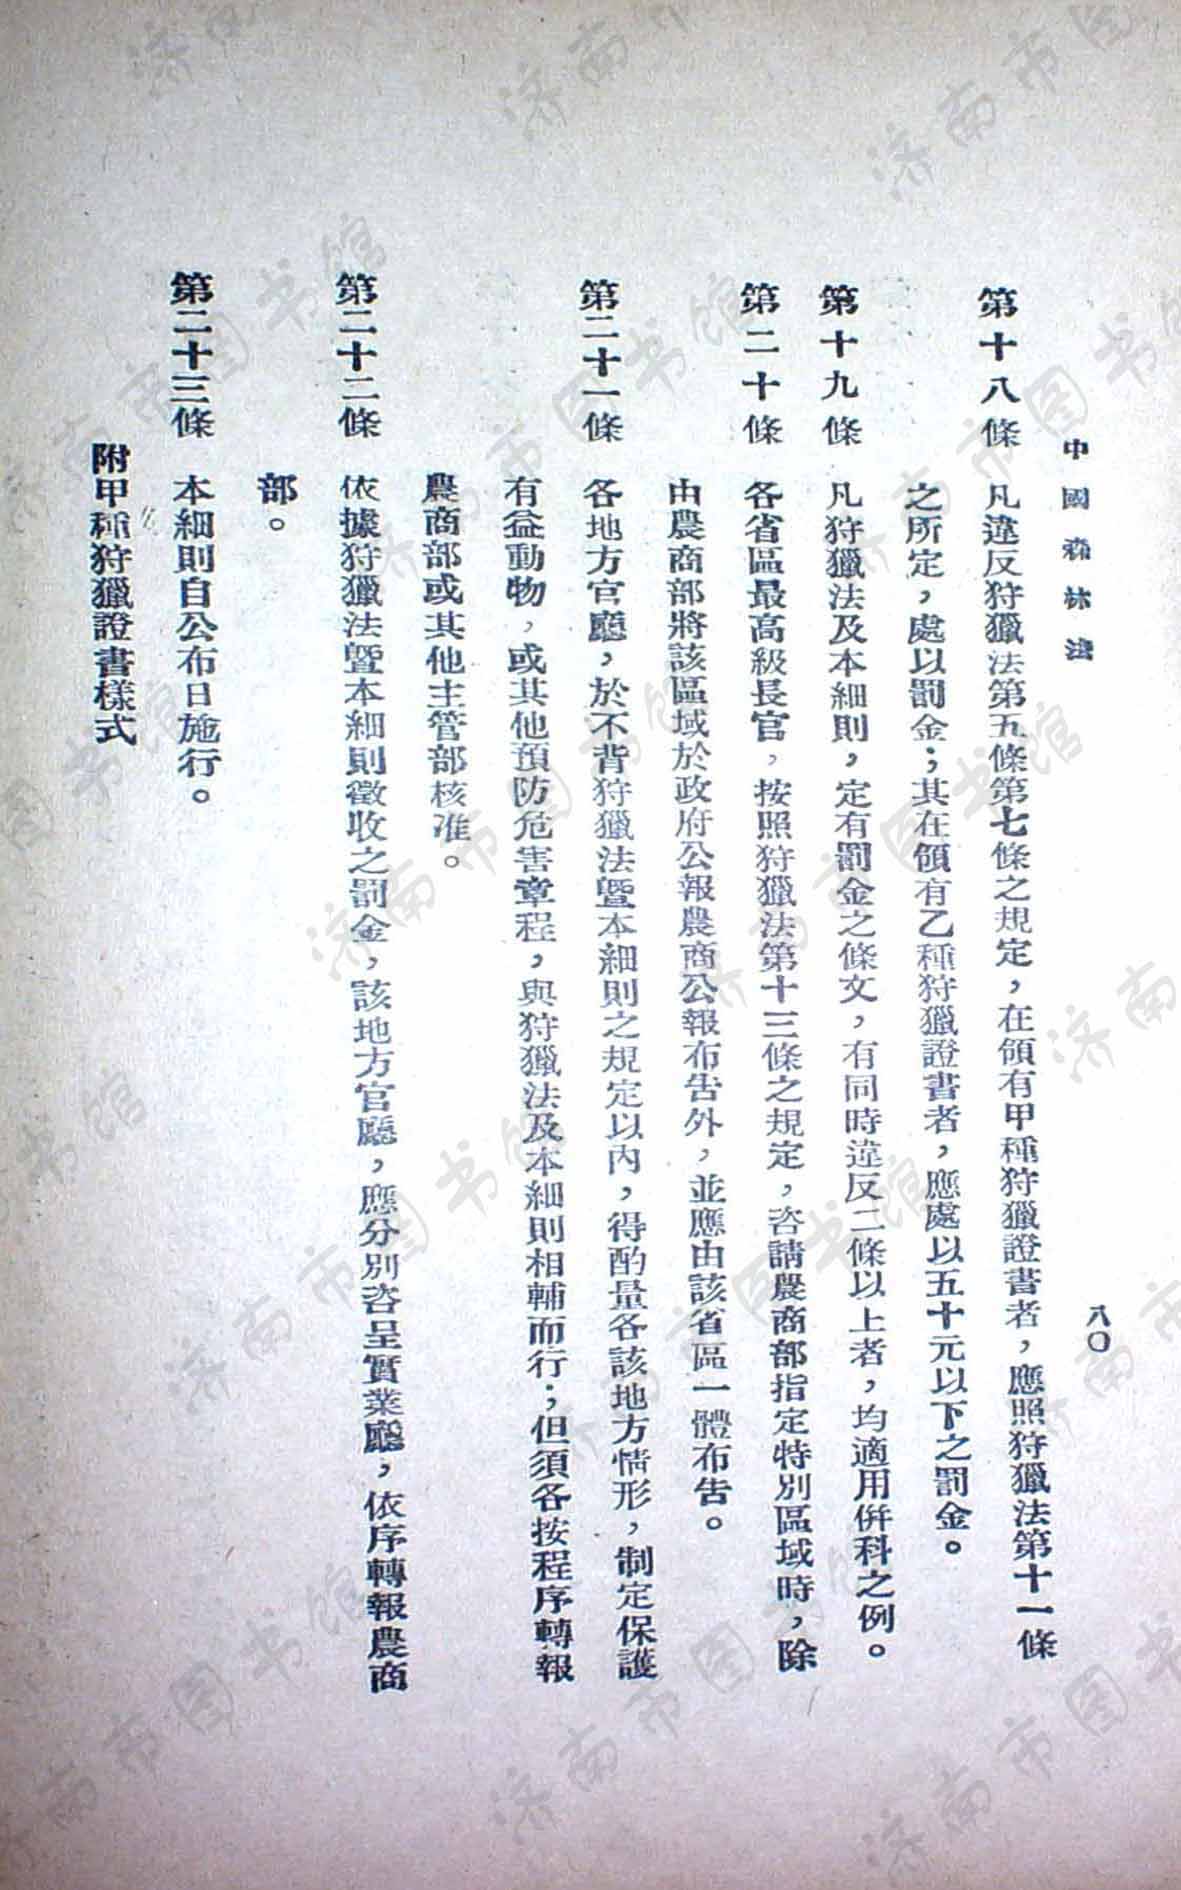 中國森林法
八〇
第十八條　凡違反狩獵法第五條第七條之規定，在領有甲種狩獵證書者，應照狩獵法第十一條
之所定，處以罰金；其在領有乙種狩獵證書者，應處以五十元以下之罰金。
第十九條　凡狩獵法及本細則，定有罰金之條文，有同時違反二條以上者，均適用併科之例。
第二十條　各省區最高級長官，按照狩獵法第十三條之規定，咨請農商部指定特別區域時，除
由農商部將該區域於政府公報農商公報布告外，並應由該省區一體布告。
第二十一條　各地方官廳，於不背狩獵法暨本細則之規定以內，得酌量各該地方情形，制定保護
有益動物，或其他預防危害章程，與狩獵法及本細則相輔而行；但須各按程序轉報
農商部或其他主管部核准。
第二十二條　依據狩獵法暨本細則徵收之罰金，該地方官廳，應分別咨呈實業廳，依序轉報農商
部。
第二十三條　本細則自公布日施行。
附甲種狩獵證書樣式
济南市图书馆